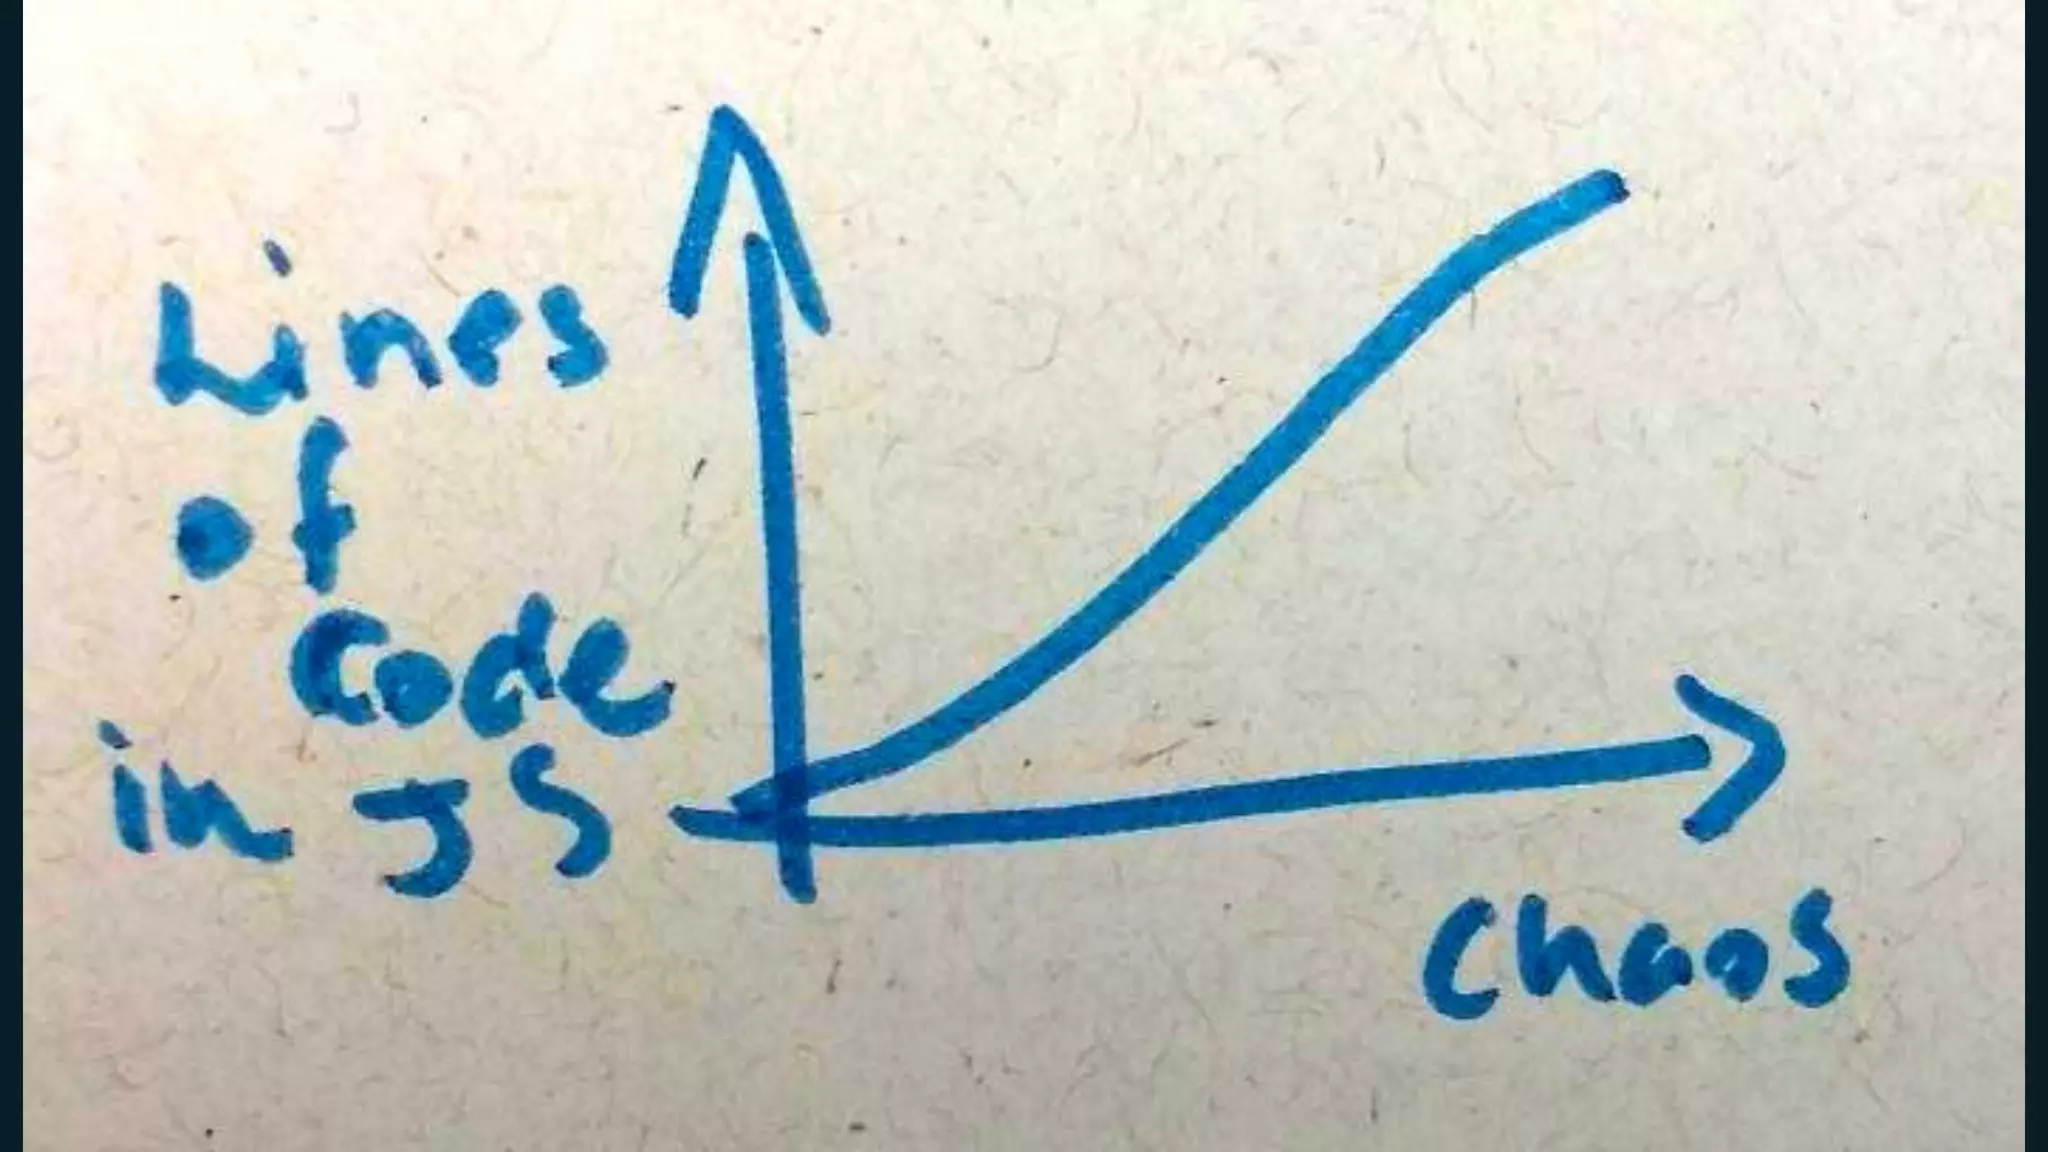 Lines
of
Code
in JS
Chaos